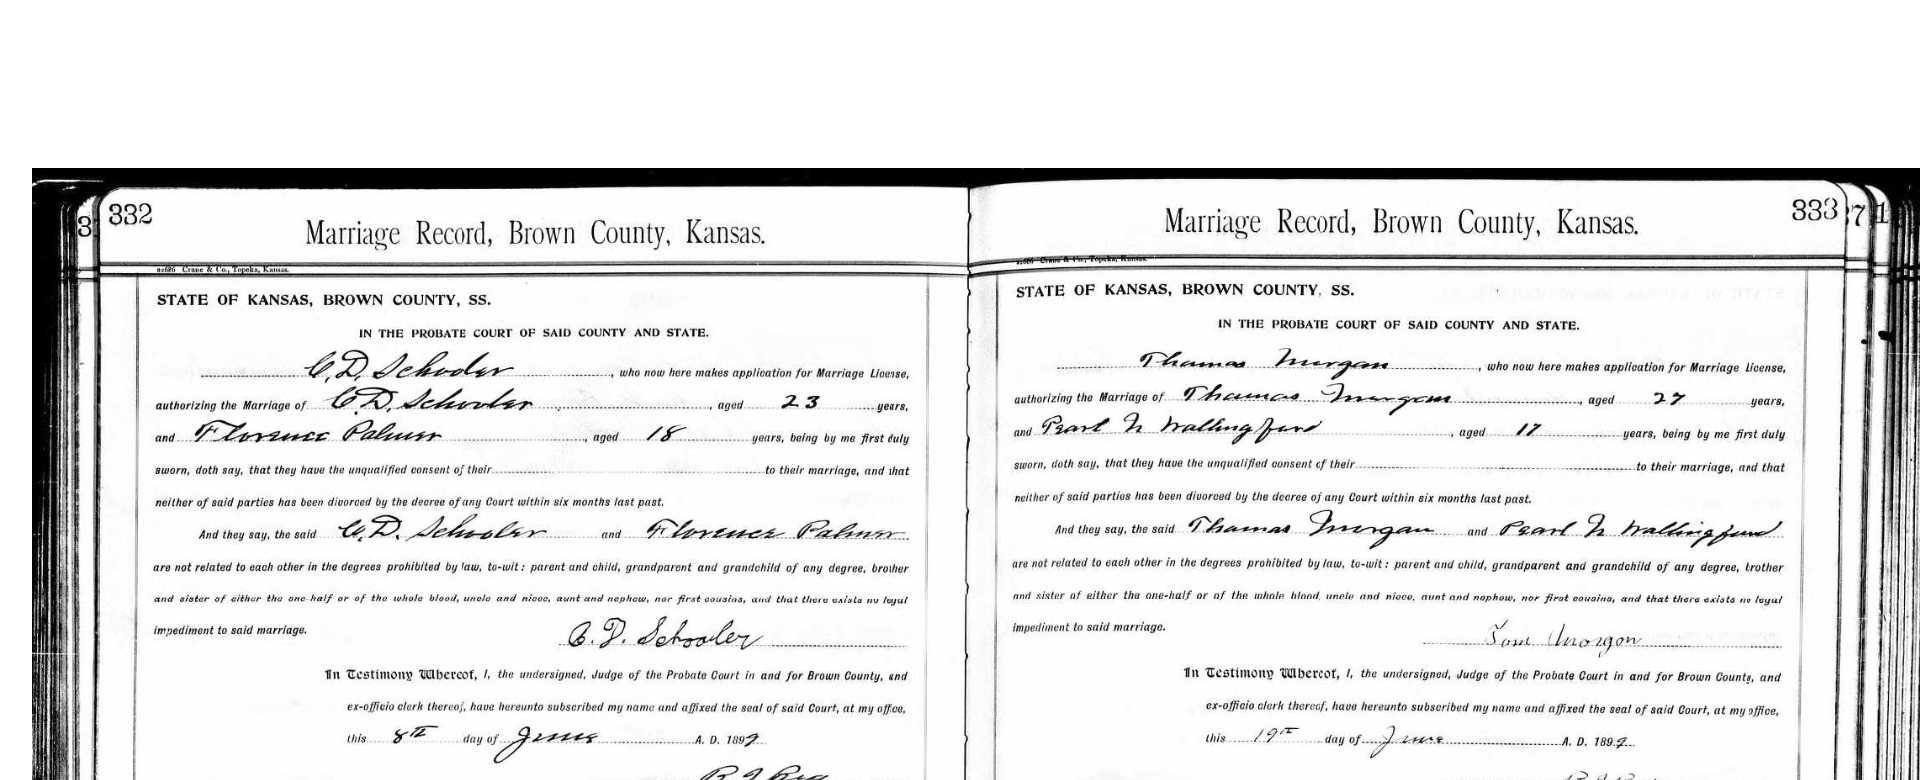 332
Marriage Record, Brown County, Kansas.
Crane & Co., Topeka, Kansas.
STATE OF KANSAS, BROWN COUNTY, SS.
IN THE PROBATE COURT OF SAID COUNTY AND STATE.
C. D. Schooler, who now here makes application for Marriage License,
authorizing the Marriage of C. D. Schooler, aged 23 years,
and Florence Palmer, aged 18 years, being by me first duly
sworn, doth say, that they have the unqualified consent of their to their marriage, and that
neither of said parties has been divorced by the decree of any Court within six months last past.
And they say, the said C. D. Schooler and Florence Palmer
are not related to each other in the degrees prohibited by law, to-wit: parent and child, grandparent and grandchild of any degree, brother
and sister of either the one-half or of the whole blood, uncle and niece, aunt and nephew, nor first cousins, and that there exists no legal
impediment to said marriage.
C. D. Schooler
In Testimony Whereof, I, the undersigned, Judge of the Probate Court in and for Brown County, and
ex-officio clerk thereof, have hereunto subscribed my name and affixed the seal of said Court, at my office,
this 8th day of June A. D. 1899
333
Marriage Record, Brown County, Kansas.
Crane & Co., Topeka, Kansas.
STATE OF KANSAS, BROWN COUNTY, SS.
IN THE PROBATE COURT OF SAID COUNTY AND STATE.
Thomas Morgan, who now here makes application for Marriage License,
authorizing the Marriage of Thomas Morgan, aged 27 years,
and Pearl N Wallingford, aged 17 years, being by me first duly
sworn, doth say, that they have the unqualified consent of their to their marriage, and that
neither of said parties has been divorced by the decree of any Court within six months last past.
And they say, the said Thomas Morgan and Pearl N Wallingford
are not related to each other in the degrees prohibited by law, to-wit: parent and child, grandparent and grandchild of any degree, brother
and sister of either the one-half or of the whole blood, uncle and niece, aunt and nephew, nor first cousins, and that there exists no legal
impediment to said marriage.
Tom Morgon
In Testimony Whereof, I, the undersigned, Judge of the Probate Court in and for Brown County, and
ex-officio clerk thereof, have hereunto subscribed my name and affixed the seal of said Court, at my office,
this 19th day of June A. D. 1899